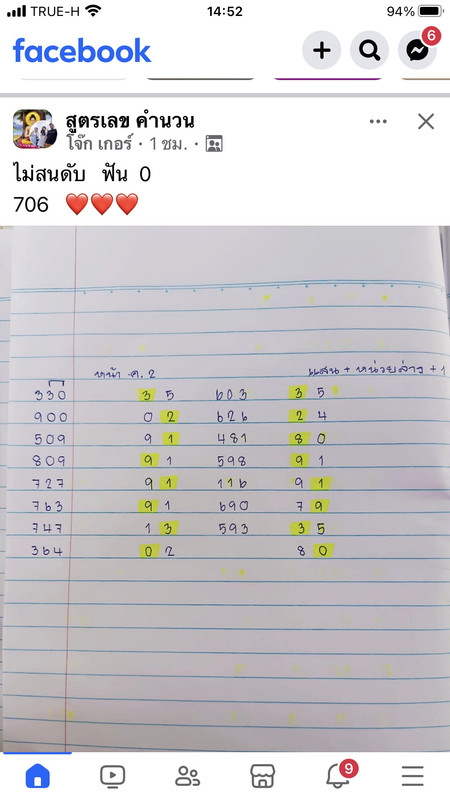 TRUE-H 14:52 94%
facebook 6
สูตรเลข คำนวน
โจ๊ก เกอร์ · 1 ชม. ·
ไม่สนดับ ฟัน 0
706 ❤️❤️❤️
หน้า ค. 2 แสน + หน่วยล่าง + 1
330 35 603 35
900 02 626 24
509 91 481 80
809 91 598 91
727 91 116 91
763 91 690 79
747 13 593 35
364 02 80
9